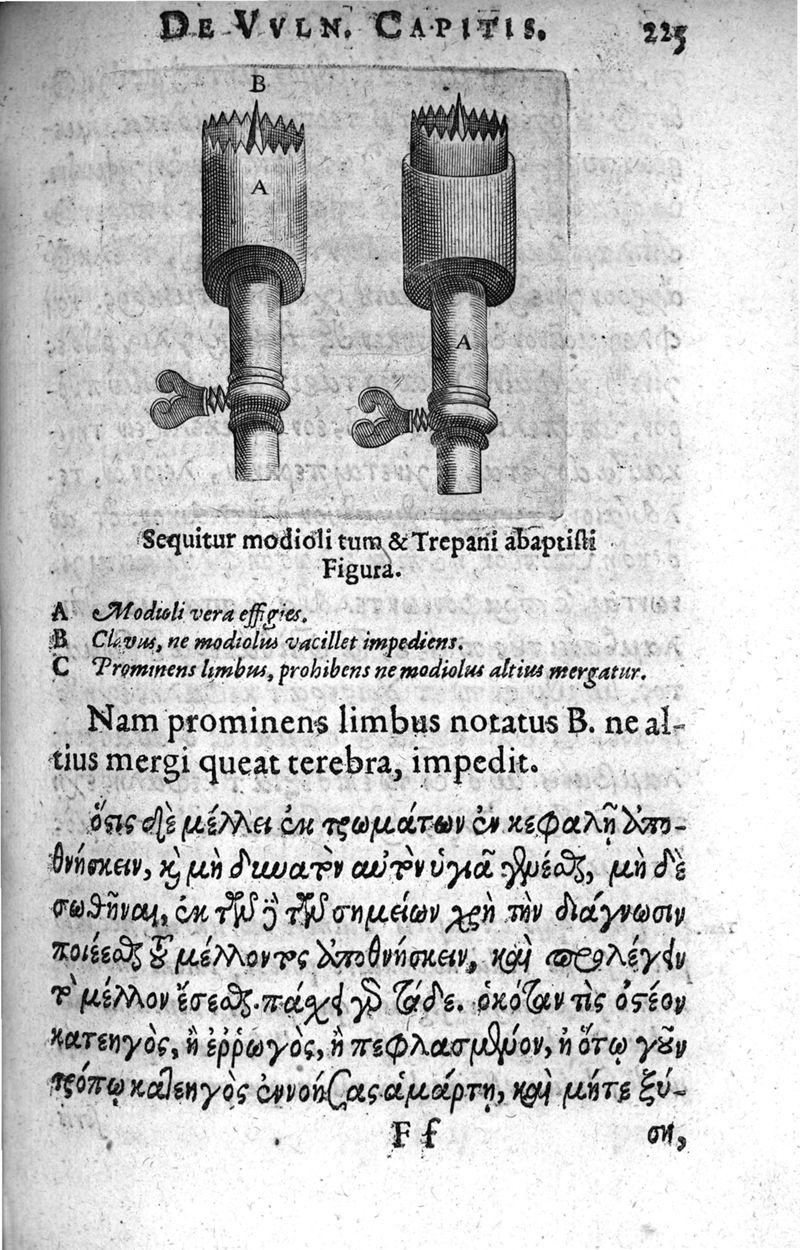 DE VVLN. CAPITIS. 225
B
A
A
Sequitur modioli tum & Trepani abaptisti
Figura.
A Modioli vera effigies.
B Clavus, ne modiolus vacillet impediens.
C Prominens limbus, prohibens ne modiolus altius mergatur.
Nam prominens limbus notatus B. ne al-
tius mergi queat terebra, impedit.
ὅστις δὲ μέλλει ἐκ τρωμάτων ἐν κεφαλῇ ἀπο-
θνήσκειν, καὶ μὴ δυνατὸν αὐτὸν ὑγιᾶ γενέσθαι, μὴ δὲ
σωθῆναι, ἐκ τῶνδε τῶν σημείων χρὴ τὴν διάγνωσιν
ποιέεσθαι τοῦ μέλλοντος ἀποθνήσκειν, καὶ προλέγειν
τὸ μέλλον ἔσεσθαι. πάσχει γὰρ τάδε. ὁκόταν τὶς ὀστέον
κατεηγὸς, ἢ ἐῤῥωγὸς, ἢ πεφλασμένον, ἢ ὅτῳ γοῦν
τρόπῳ κατεηγὸς ἐννοήσας ἁμάρτῃ, καὶ μήτε ξύ-
F f
σῃ,